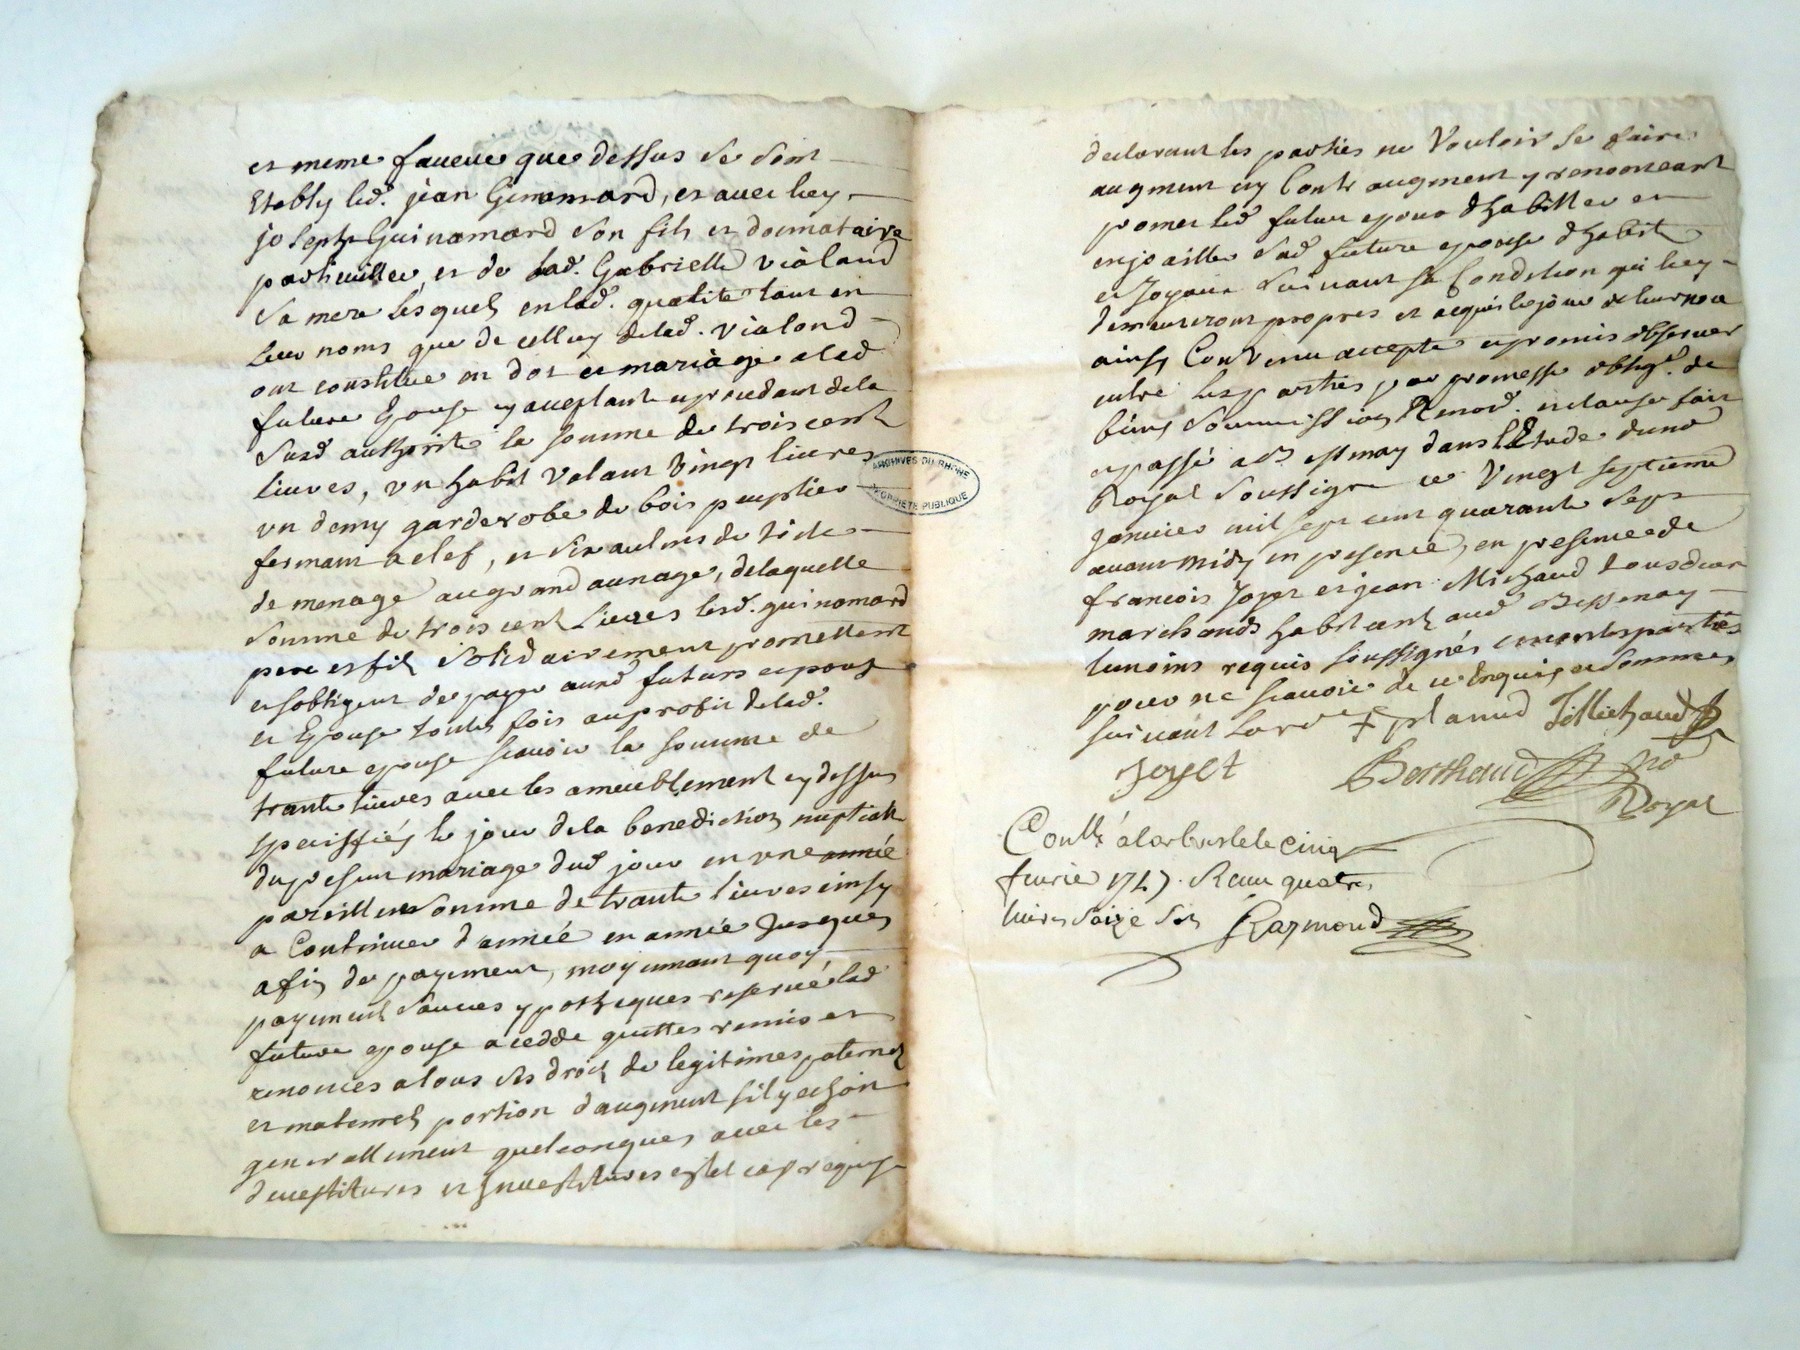 et meme faueur que dessus se sont
Etably led. jean Guinamard, et auec luy
joseph Guinamard son fils et donnataire
particullier, et de lad. Gabrielle vialand
sa mere lesquels en lad. qualité tant en
leur noms que de celluy de lad. vialond
ont constitue en dot et mariage a lad
future Epouse y acceptante procedant de la
susd authorité la somme de trois cent
liures, vn habit valant vingt liures
vn demy garderobe de bois peuplier
fermant a clef, et six aulnes de toile
de menage au grand aunage, delaquelle
somme de trois cent liures lesd. guinamard
pere et fils solidairement promettent
et sobligent de payer ausd futurs epoux
et Epouse toutes fois au profit de lad.
future epouse scauoir la somme de
trante liures auec les ameublement cy dessus
speciffiés le jour de la benediction nuptialle
du present mariage dud jour en une année
pareille somme de trante liures einsy
a Continuer d'année en année Jusques
a fin de payement, moyennant quoy,
payement sauues ypotheques reserué lad
future epouse a cedde quitte remis et
renonces a tous ses droits de legitimes paternels
et maternels portion d'augment sil y echoit
generallement quelconques auec les
deuestitures et Inuestitures et cas requis
ARCHIVES DU RHONE
PROPRIETE PUBLIQUE
declarant les parties ne Vouloir se faire
augment ny Contr augment y renonceant
promet led futur epoux d'habiller et
enjoailler sad future epouse d'habits
et Joyaux suiuant sa Condition qui luy
demeureront propres et acquis le jour de leur noce
ainsy Conuenu accepte et promis obseruer
entre les parties par promesse oblig. de
biens soumissions Renon. et clauses fait
et passé a Bessenay dans l'Etude du no
Royal soussigne ce Vingt septieme
januier mil sept cent quarante sept
auant midy en presence, en presence de
francois Joyet et jean Michaud tous deux
marchands habitants aud Bessenay
temoins requis soussignés et non les parties
pour ne scauoir de ce Enquis et sommes
suiuant lord planud J Michaud
Joyet Berthaud no
Royal
Conll a larbresle le cinq
feurier 1747. Recu quatre
liures saize sols Raymond